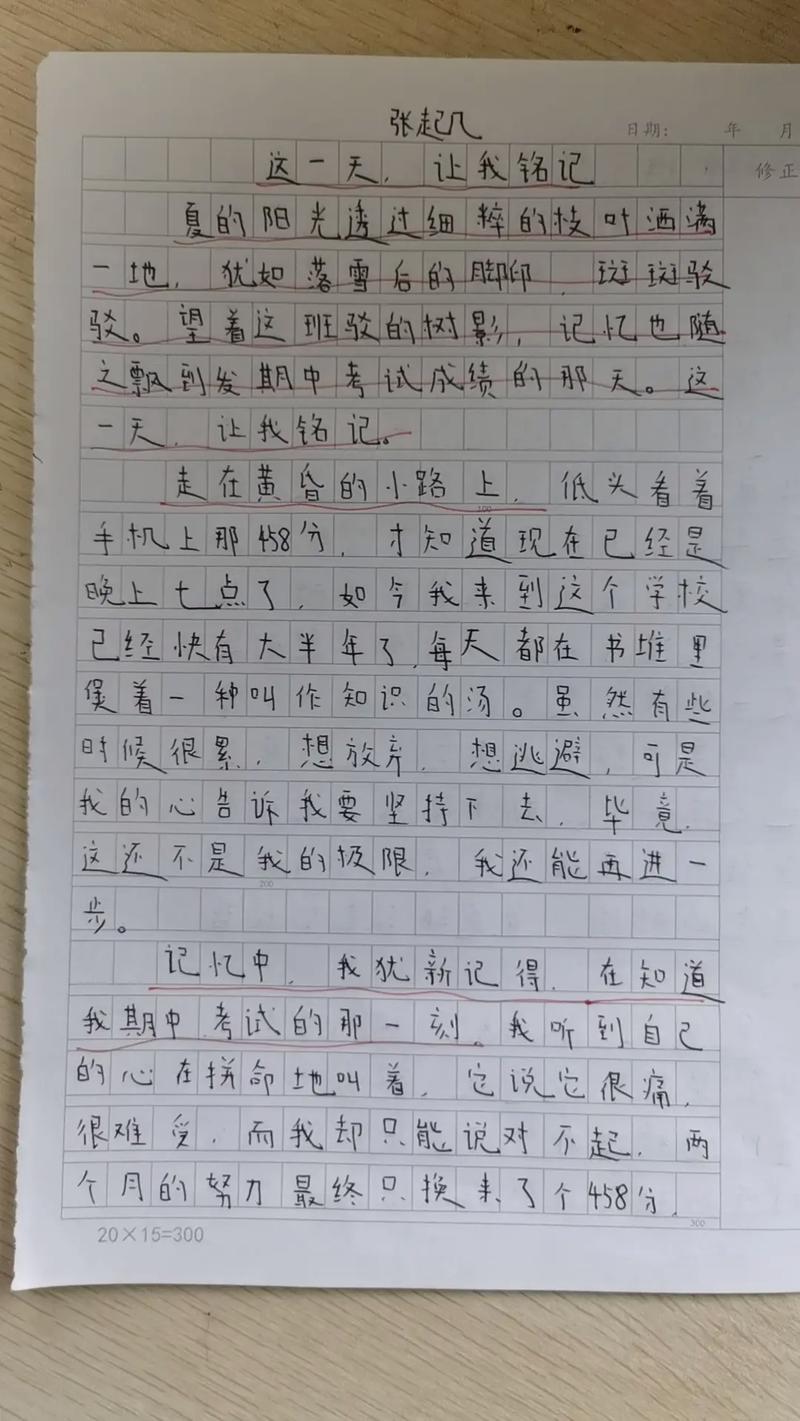 张起凡
日期: 年 月
修正
这一天，让我铭记
夏的阳光透过细粹的枝叶洒满
一地，犹如落雪后的脚印，斑斑驳
驳。望着这班驳的树影，记忆也随
之飘到发期中考试成绩的那天。这
一天，让我铭记。
走在黄昏的小路上，低头看着
100
手机上那458分，才知道现在已经是
晚上七点了，如今我来到这个学校
已经快有大半年了，每天都在书堆里
煲着一种叫作知识的汤。虽然有些
时候很累，想放弃，想逃避，可是
我的心告诉我要坚持下去，毕竟，
这还不是我的极限，我还能再进一
200
步。
记忆中，我犹新记得，在知道
我期中考试的那一刻。我听到自己
的心在拼命地叫着，它说它很痛，
很难受，而我却只能说对不起，两
个月的努力最终只换来了个458分，
300
20×15=300